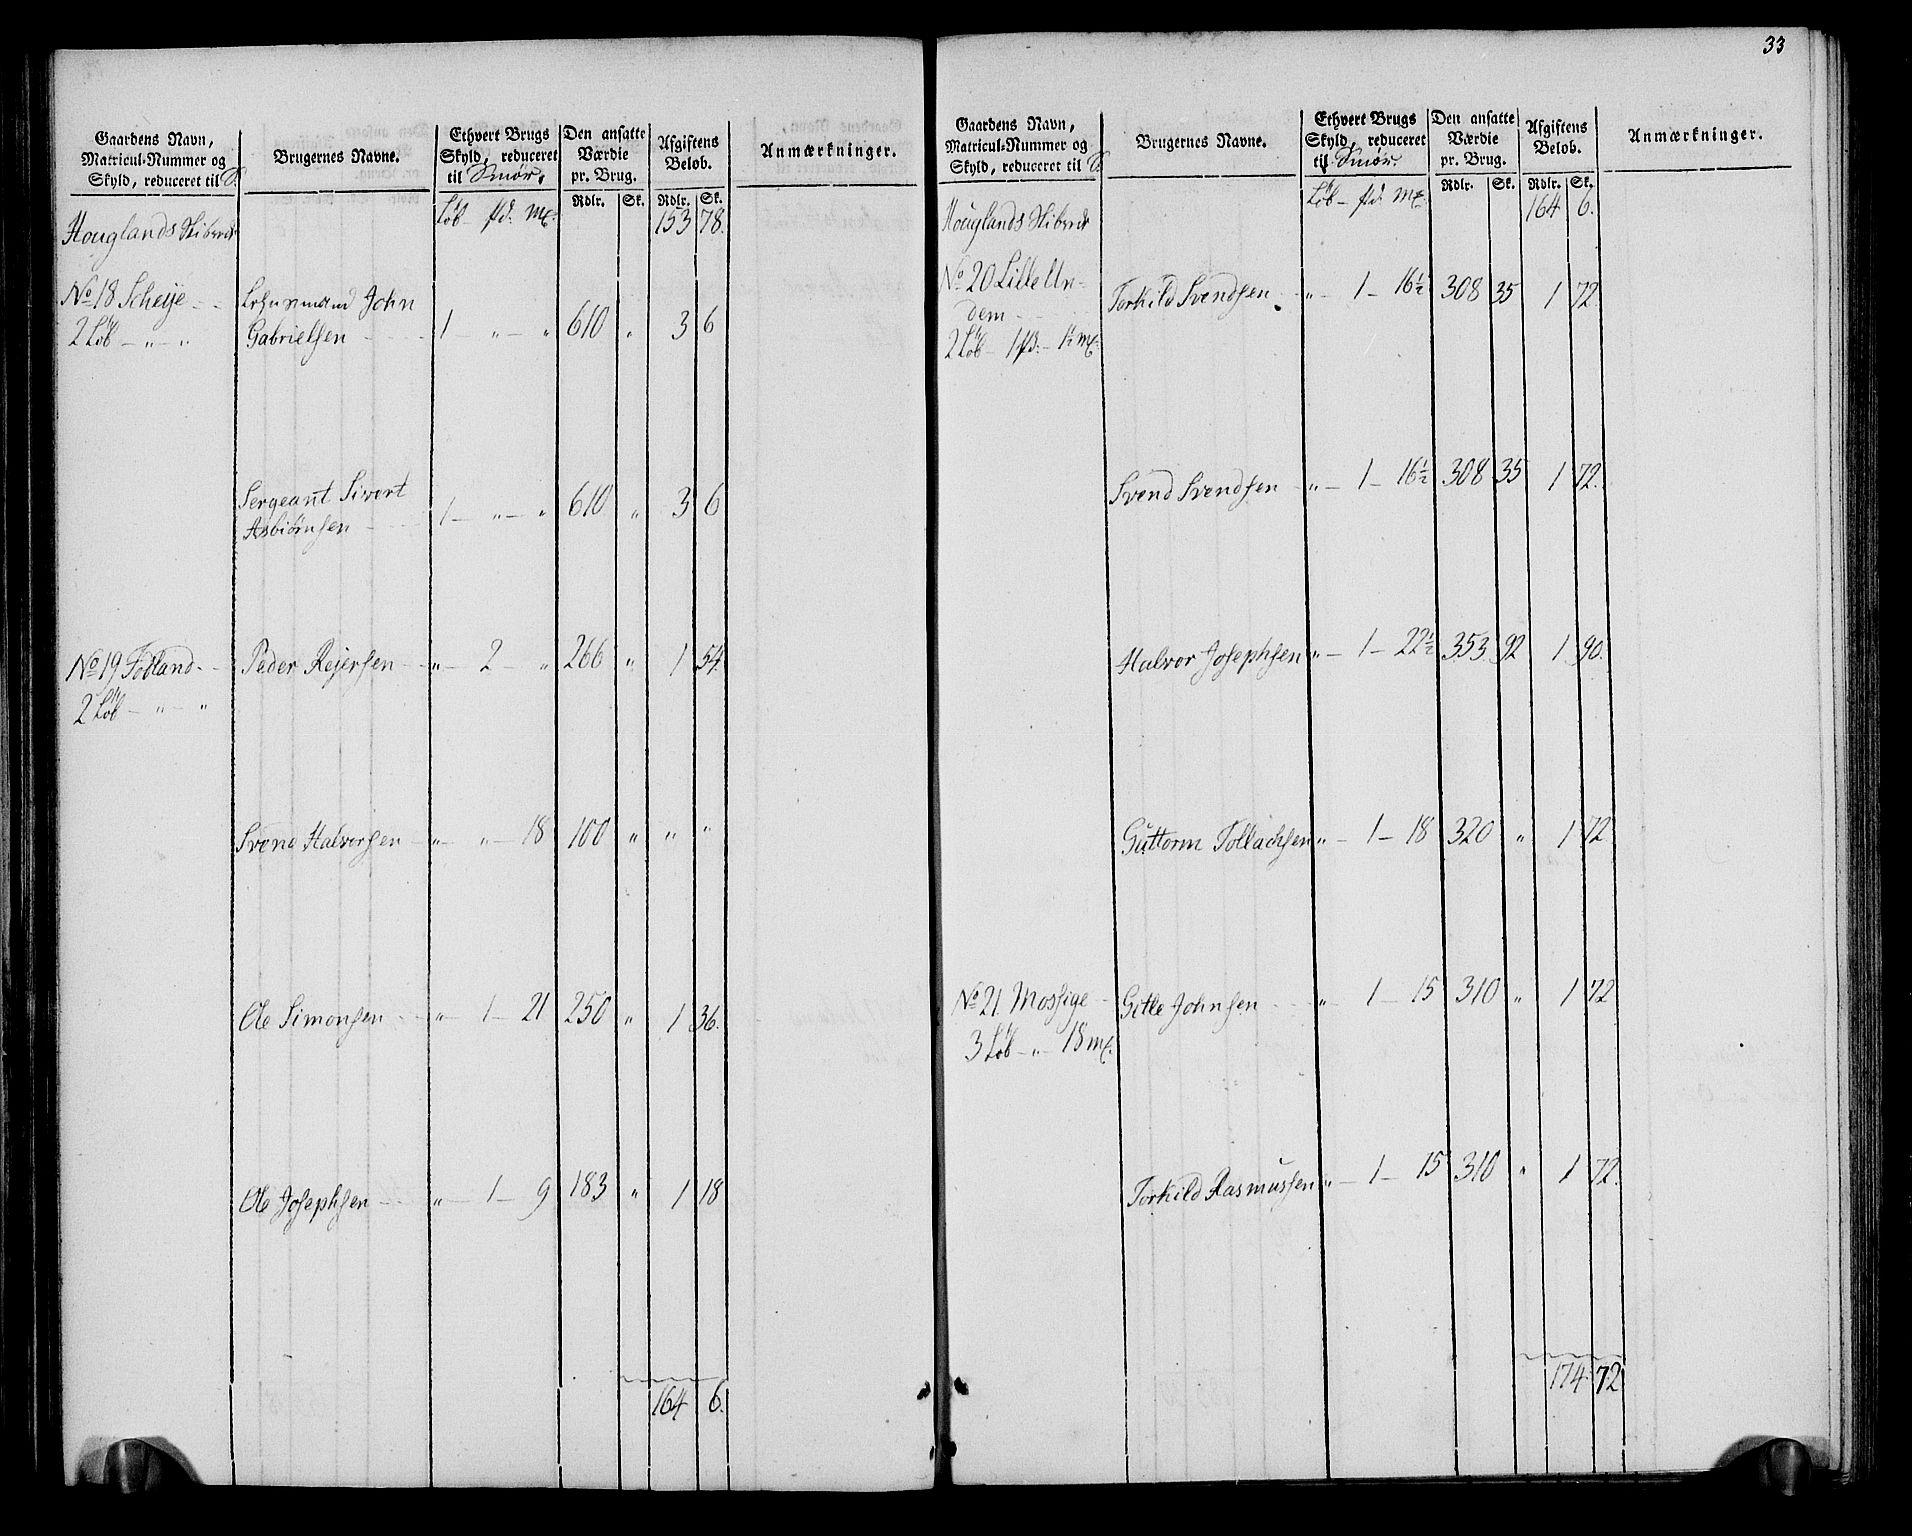 Gaardens Navn,
Matricul-Nummer og
Skyld, reduceret til S.
Brugernes Navne.
Ethvert Brugs
Skyld, reduceret
til Smør.
Den ansatte
Værdie
pr. Brug.
Rdlr. Sk.
Afgiftens
Beløb.
Rdlr. Sk.
Anmærkninger.
Houglands Skibrede Løb – pd. mk. 153 78.
No 18 Scheije Lehnsmand John
2 Løb – „ – „ Gabrielsen 1 „ – „ 610 „ 3 6
Sergeant Sivert
Asbiørnsen 1 – „ – „ 610 „ 3 6
No 19 Todland Peder Rejersen „ – 2 – „ 266 „ 1 54.
2 Løb – „ – „
Svend Halvorsen „ – „ – 18 100 „ „ „
Ole Simonsen „ – 1 – 21 250 „ 1 36.
Ole Josephsen „ – 1 – 9 183 „ 1 18
164 6.
33
Gaardens Navn,
Matricul-Nummer og
Skyld, reduceret til S.
Brugernes Navne.
Ethvert Brugs
Skyld, reduceret
til Smør.
Den ansatte
Værdie
pr. Brug.
Rdlr. Sk.
Afgiftens
Beløb.
Rdlr. Sk.
Anmærkninger.
Houglands Skibrede Løb – pd. mk. 164 6.
No 20 Lille Un-
dem Torkild Svendsen „ – 1 – 16½ 308 35 1 72.
2 Løb – 1 pd. – 1½ mk.
Svend Svendsen „ – 1 – 16½ 308 35 1 72.
Halvor Josephsen „ – 1 – 22½ 353 92 1 90.
Guttorm Tollachsen „ – 1 – 18 320 „ 1 72
No 21 Mossige Gitle Johnsen „ 1 – 15 310 „ 1 72
3 Løb – „ – 18 mk.
Torkild Rasmussen „ – 1 – 15 310 „ 1 72.
174 72